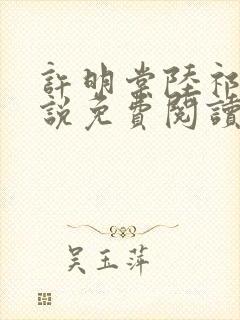 許明棠陸祁
說免費閱讀
吴玉萍